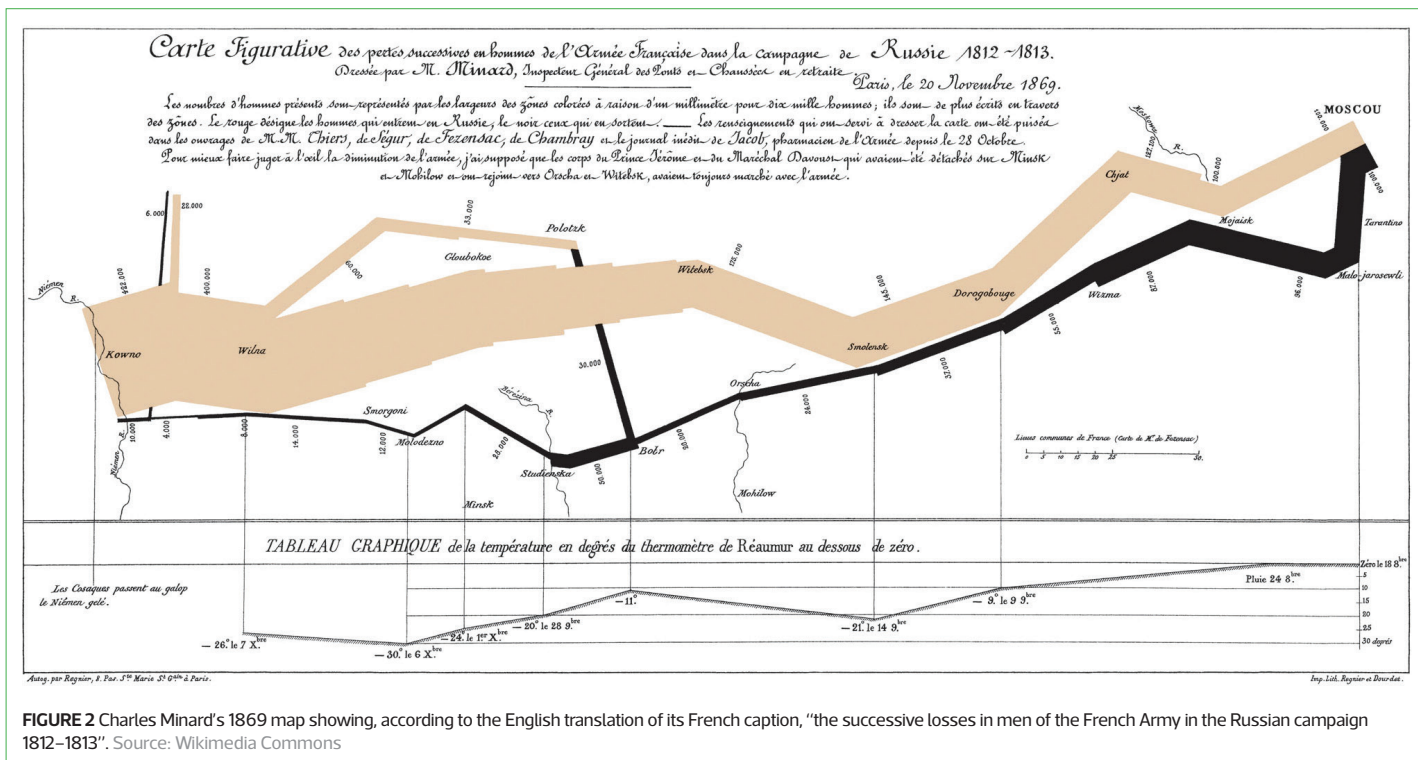 Carte Figurative des pertes successives en hommes de l'Armée Française dans la campagne de Russie 1812~1813.
Dressée par M. Minard, Inspecteur Général des Ponts et Chaussées en retraite.
Paris, le 20 Novembre 1869.
Les nombres d'hommes présents sont représentés par les largeurs des zônes colorées à raison d'un millimètre pour dix mille hommes; ils sont de plus écrits en travers
des zônes. Le rouge désigne les hommes qui entrent en Russie, le noir ceux qui en sortent. — Les renseignements qui ont servi à dresser la carte ont été puisés
dans les ouvrages de M.M. Thiers, de Ségur, de Fezensac, de Chambray et le journal inédit de Jacob, pharmacien de l'Armée depuis le 28 Octobre.
Pour mieux faire juger à l'œil la diminution de l'armée, j'ai supposé que les corps du Prince Jérôme et du Maréchal Davoust qui avaient été détachés sur Minsk
et Mohilow et ont rejoint vers Orscha et Witebsk, avaient toujours marché avec l'armée.
MOSCOU
100.000
100.000
Moskowa R.
127.100
100.000
Chjat
Mojaisk
Tarantino
Malo-jarosewli
6.000
22.000
33.000
Polotzk
Gloubokoe
60.000
175.000
Witebsk
145.000
Dorogobouge
Wizma
87.000
96.000
55.000
Niémen R.
422.000
400.000
Kowno
Wilna
30.000
Smolensk
37.000
Orscha
24.000
Bérézina R.
Smorgoni
Molodezno
10.000
4.000
8.000
14.000
12.000
28.000
Studienska
50.000
Bobr
20.000
Niémen R.
Minsk
Mohilow
Lieues communes de France (Carte de M. de Fezensac)
0 5 10 15 20 25 50.
TABLEAU GRAPHIQUE de la température en degrés du thermomètre de Réaumur au dessous de zéro.
Les Cosaques passent au galop
le Niémen gelé.
Zéro le 18 8.bre
5
10
15
20
25
30 degrés
Pluie 24 8.bre
— 9.° le 9 9.bre
— 21.° le 14 9.bre
— 11.°
— 20.° le 28 9.bre
— 24.° le 1.er X.bre
— 30.° le 6 X.bre
— 26.° le 7 X.bre
Autog. par Regnier, 8. Pas. S.te Marie S.t G.ain à Paris.
Imp. Lith. Regnier et Dourdet.
FIGURE 2 Charles Minard's 1869 map showing, according to the English translation of its French caption, "the successive losses in men of the French Army in the Russian campaign
1812–1813". Source: Wikimedia Commons